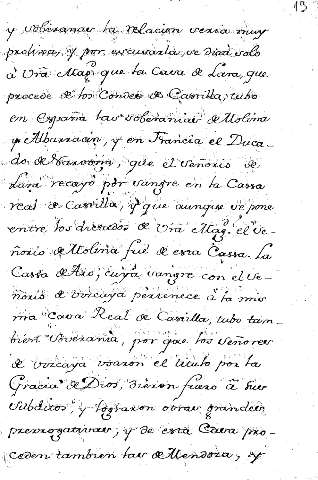 19
y soberanas la relacion seria muy
prolixa, y por escusarla, se dirá solo
á Vrã Magd. que la Casa de Lara, que
procede de los Condes de Castilla, tubo
en España las soberanias de Molina
y Albarracin, y en Francia el Duca-
do de Narvona, que el señorio de
Lara recayó por sangre en la Cassa
real de Castilla, y que aunque se pone
entre los dictados de Vrã Magd. el se-
ñorio de Molina fué de esta Cassa. La
Cassa de Aro, cuya sangre con el se-
ñorio de viscaya pertenece á la mis
ma Casa Real de Castilla, tubo tam-
bien soverania, por que los señores
de viscaya usaron el titulo por la
Gracia de Dios, dieron fuero á sus
subditos, y lograron otras grandes
prerrogativas, y de esta Casa pro-
ceden tambien las de Mendoza, y